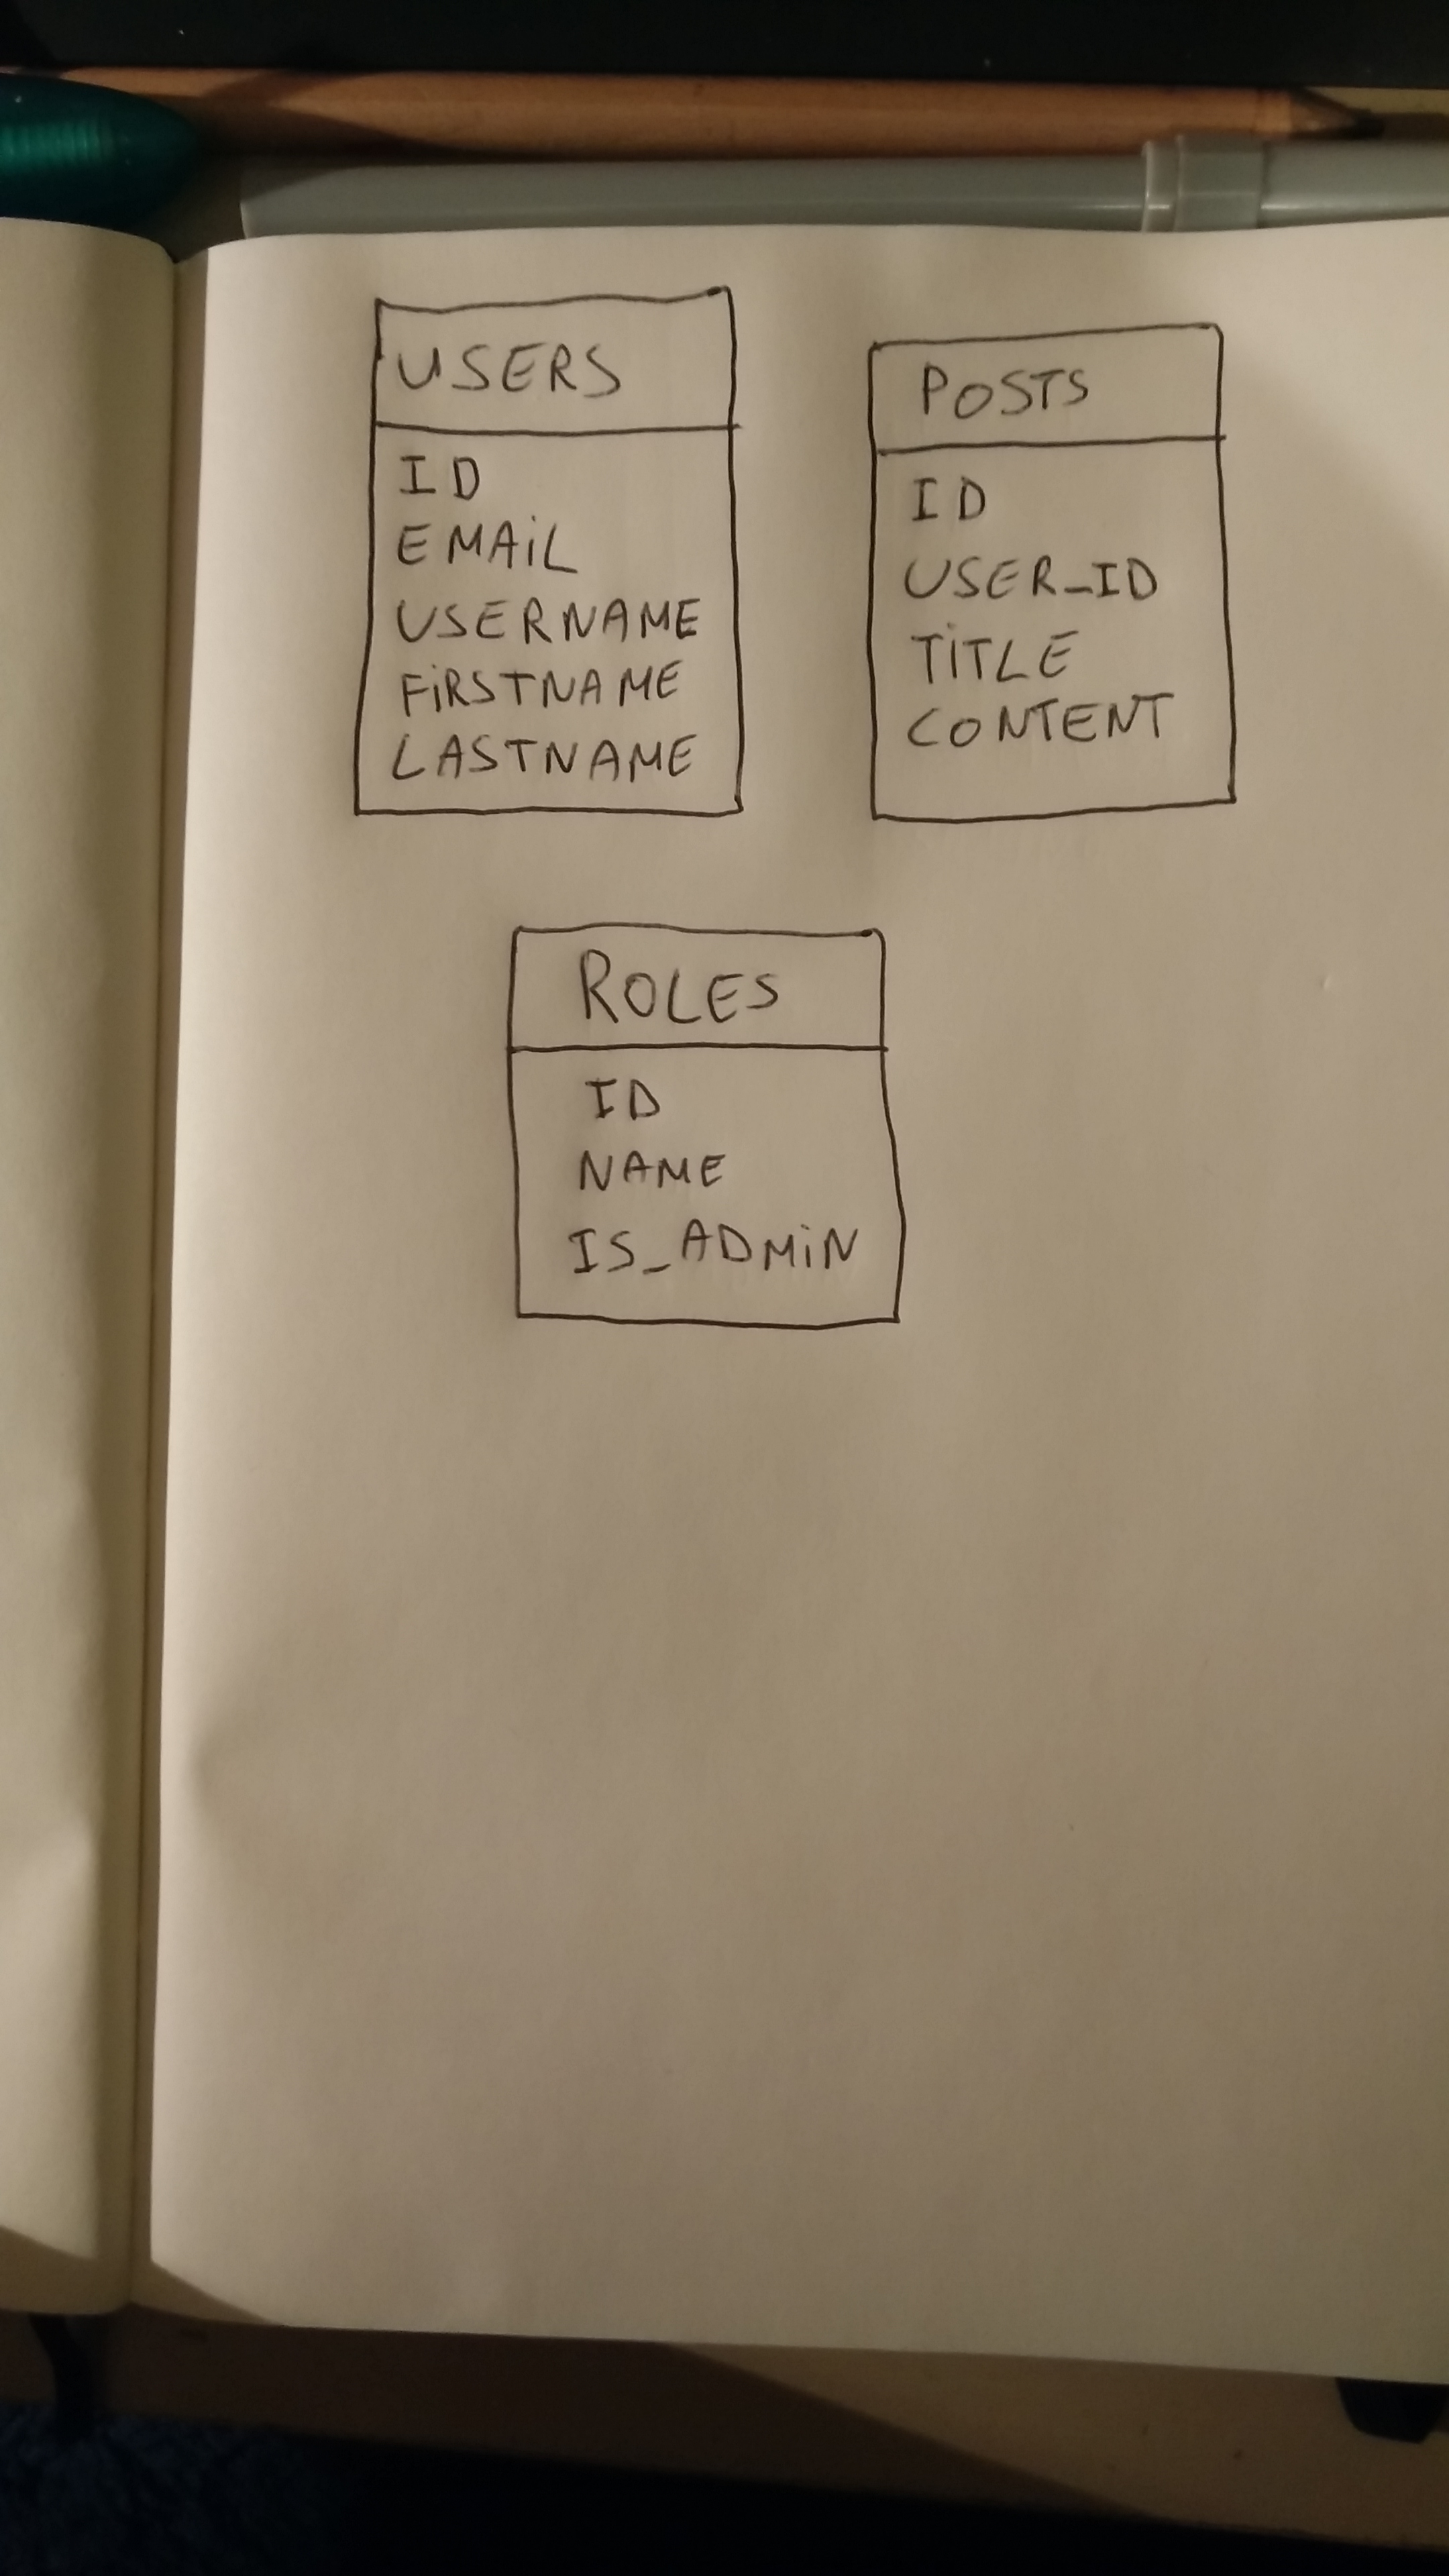 USERS
ID
EMAiL
USERNAME
FiRSTNAME
LASTNAME
POSTS
ID
USER_ID
TiTLE
CONTENT
ROLES
ID
NAME
IS_ADMiN